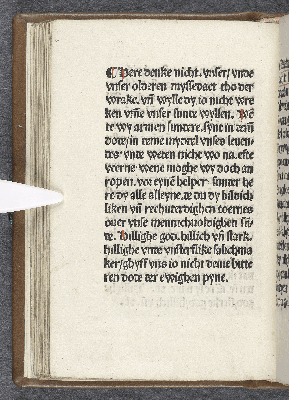 ¶ Here denke nicht. vnser/ vnde
vnser olderen myssedaet tho der
wrake. vñ wylle dy io nicht wre
ken vm̃e vnser sunte wyllen. We
te wy armen sundere. synt in dem
dote/ in deme myddel vnses leuen
tes. vnte weten nicht wo na. efte
verne. weme moghe wy doch an
ropen. vor eynẽ helper. sunder he
re dy alle alleyne. de du dy billich
liken vñ rechtuerdighen toernes
ouer vnse mennichuoldighen sũ
de. Hillighe god. hillich vñ stark.
hillighe vnte vnsterflike salichma
ker/ ghyff vns io nicht deme bitte
ren dote der ewighen pyne.